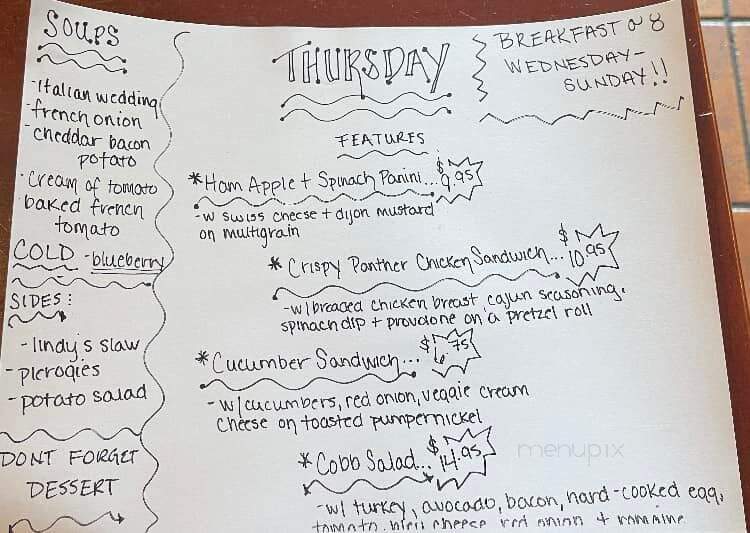 SOUPS
-Italian wedding
-french onion
-cheddar bacon
potato
-cream of tomato
baked french
tomato
COLD -blueberry
SIDES:
-lindy's slaw
-pierogies
-potato salad
DONT FORGET
DESSERT
THURSDAY
BREAKFAST @ 8
WEDNESDAY-
SUNDAY!!
FEATURES
*Ham Apple + Spinach Panini... $9.95
-w swiss cheese + dijon mustard
on multigrain
*Crispy Panther Chicken Sandwich... $10.95
-w/ breaded chicken breast, cajun seasoning,
spinach dip + provolone on a pretzel roll
*Cucumber Sandwich... $6.75
-w/ cucumbers, red onion, veggie cream
cheese on toasted pumpernickel
*Cobb Salad... $14.95
-w/ turkey, avocado, bacon, hard-cooked egg,
tomato, bleu cheese, red onion + romaine
menupix